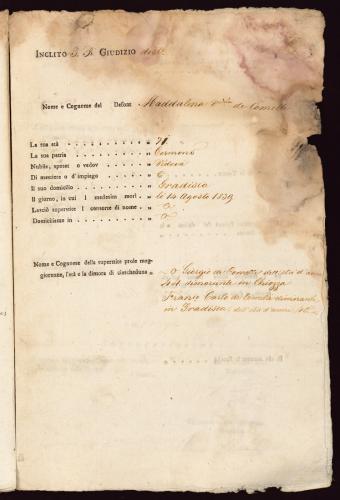 INCLITO I. R. GIUDIZIO
Nome e Cognome del Defont Maddalena de Comelli
La sua età „ 71.
La sua patria „ Cormons
Nubile, sposat o vedov „ Vedova
Di mestiere o d'impiego „
Il suo domicilio „ Gradisca
Il giorno, in cui l medesim morì „ le 14 Agosto 1839
Lasciò superstite l consorte di nome „ O
Domiciliato in „ O
Nome e Cognome della superstite prole mag-
giorenne, l'età e la dimora di ciascheduna „ O Giorgio de Comelli dell' età d'anni
dimorante in Chiozza
Franc. Carlo de Comelli dimorante
in Gradisca, dell' età d'anni